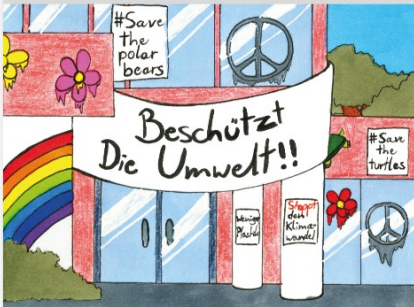 #Save
the
polar
bears
Beschützt
Die Umwelt!!
#Save
the
turtles
Weniger
Plastik
Stoppt
den
Klima-
wandel